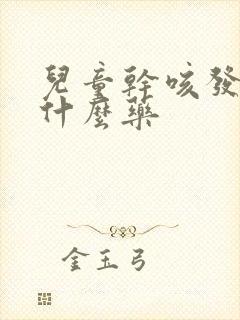 兒童幹咳發
什麼藥
金玉弓